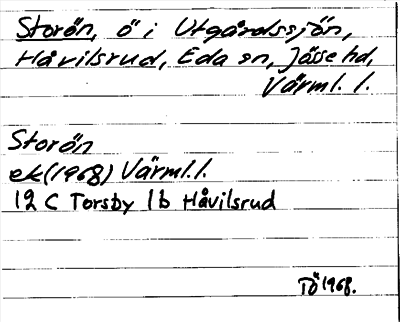 Storön, ö i Utgårdssjön,
Håvilsrud, Eda sn, Jösse hd,
Värml. l.
Storön
ek (1968) Värml. l.
12 C Torsby 1b Håvilsrud
Tö 1968.